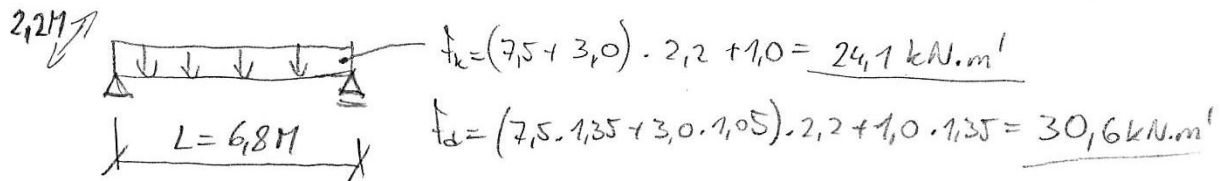 2,2M
f_k=(7,5+3,0).2,2+1,0= 24,1 kN.m'
f_d=(7,5.1,35+3,0.1,05).2,2+1,0.1,35= 30,6kN.m'
L=6,8M